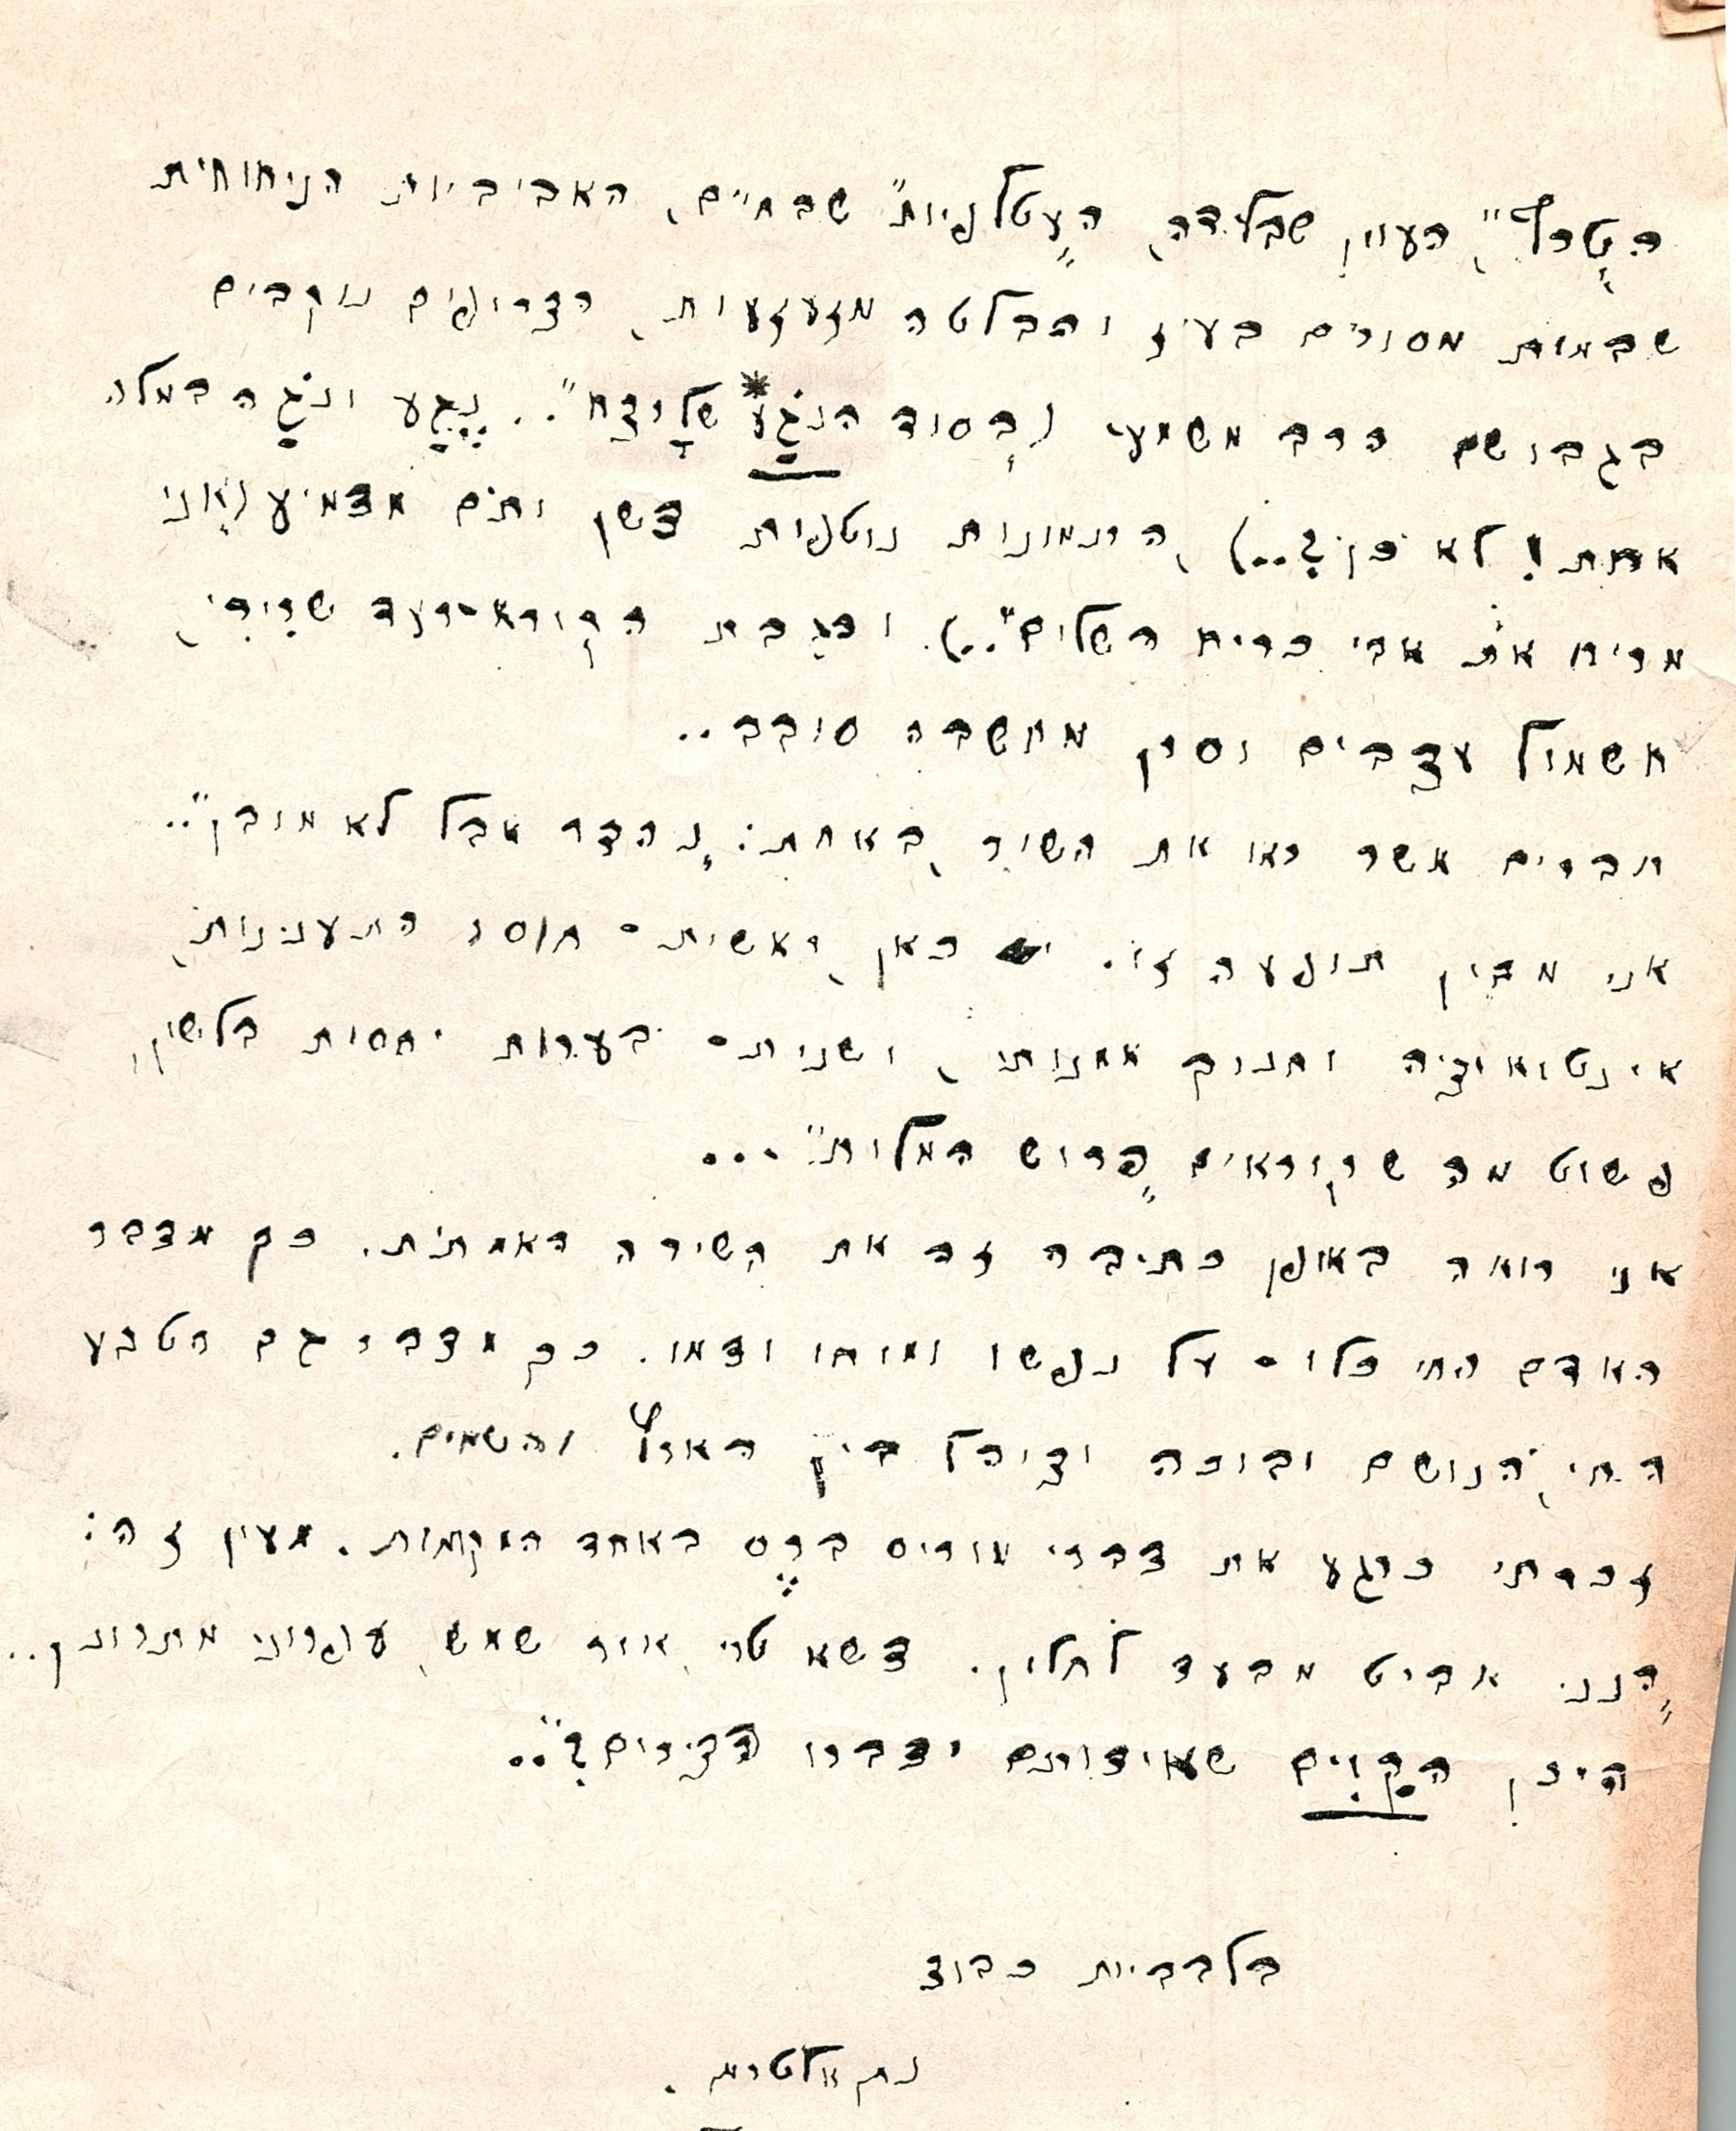 ה„טֶרף”, העוין שבלידה, ה„עטלפיות” שבחיים, האביביות הניחוחית
שבמות מסורים בעוז והבלטה מזעזעות, הצרופים נוקבים
בגבושם הרב משמעי (בְ„סוד הנֹגַע* שלָרצח”.. נֶגַע ונֹגַהּ במלה
אחת! לא כן?..), התמונות נוטפות דשן ותֹם מדמיע („אני
מריח את אבי כריח השלום”..). וכגבת הקורא־רעד שרירי,
חשמול עצבים וסרן מחשבה סובב..
חברים אשר ראו את השיר, באחת: „נהדר אבל לא מובן”..
אני מבין תופעה זו. יש כאן, ראשית - חוסר התענינות,
אינטואיציה וחנוך אמנותי, ושנית - בערות יחסית בלשון,
פשוט מה שקוראים „פרוש המלות”...
אני רואה באופן כתיבה זה את השירה האמתית. כך מדבר
האדם החי כלו - על נפשו ומוחו ודמו. כך מדבר גם הטבע
החי, הנושם ובוכה וצוהל בין הארץ והשמים.
זכרתי כרגע את דברי מוריס ברֶס באחד המקומות. מעין זה:
„הנני אביט מבעד לחלון. דשא טרי, אור שמש, עפרוני מתרונן..
היכן הקַוִים שאודותם ידברו הצירים?”..
בלבביות כבוד
נתן אלטרמן.